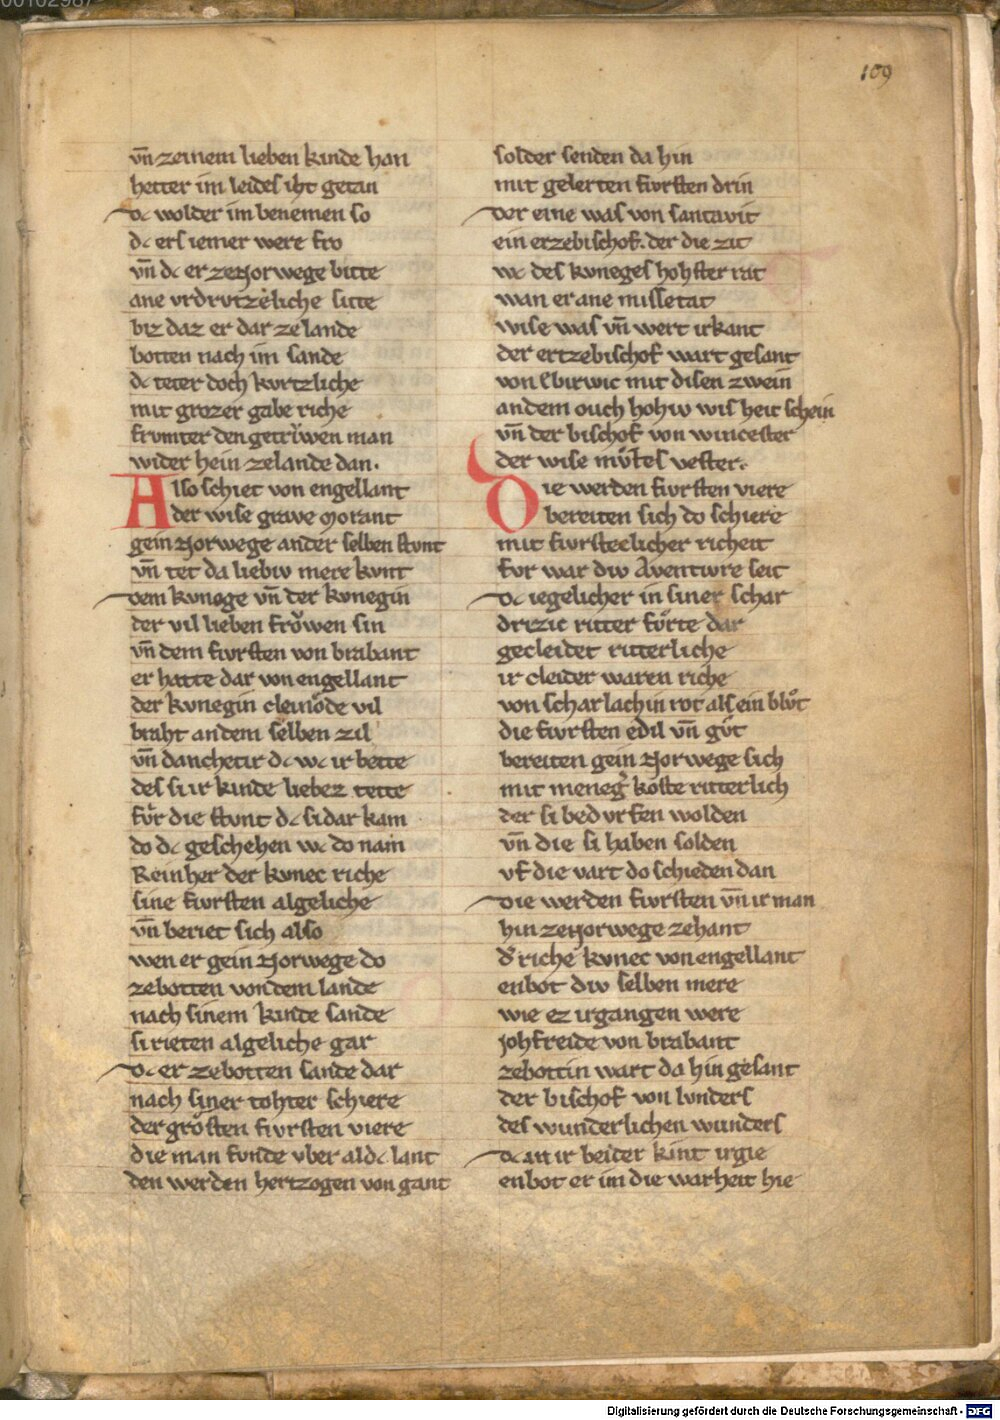 109
vn̄ zeinem lieben kinde han
hetter im leides iht getan
dc wolder im benemen so
dc ers iemer were fro
vn̄ dc er ze Norwege bitte
ane vrdrvtzeliche sitte
biz daz er dar ze lande
botten nach im sande
dc teter doch kvrtzliche
mit grozer gabe riche
frvmter den getrı̌wen man
wider hein ze lande dan.
Also schiet von engellant
der wise grave Morant
gein Norwege an der selben stvnt
vn̄ tet da liebiv mere kvnt
dem kvnege vn̄ der kvnegin
der vil lieben frǒwen sin
vn̄ dem fivrsten von brabant
er hatte dar von engellant
der kvnegin cleinǒde vil
braht an dem selben zil
vn̄ danchetir dc wc ir bette
des si ir kinde liebez tette
fv̊r die stvnt dc si dar kam
do dc geschehen wc do nam
Reinher der kvnec riche
sine fivrsten algeliche
vn̄ beriet sich also
wen er gein Norwege do
ze botten von dem lande
nach sinem kinde sande
si rieten algeliche gar
dc er ze botten sande dar
nach siner tohter schiere
der grǒsten fivrsten viere
die man fvnde vber al dc lant
den werden hertzogen von gant
solder senden da hin
mit gelerten fivrsten drin
der eine was von santavit
ein erzebischof. der die zit
wc des kvneges hohster rat
wan er ane missetat
wise was vn̄ wert irkant
der ertzebischof wart gesant
von Ebirwic mit disen zwein
an dem ouch hohiv wisheit schein
vn̄ der bischof von wincester
der wise mv̊tes vester.
Die werden fivrsten viere
bereiten sich do schiere
mit fivrsteclicher richeit
fvr war div Aventivre seit
dc iegelicher in siner schar
drizic ritter fv̊rte dar
gecleidet ritterliche
ir cleider waren riche
von scharlachin rot als ein blv̊t
die fivrsten edil vn̄ gv̊t
bereiten gein Norwege sich
mit meneg̉ koste ritterlich
der si bedvrfen wolden
vn̄ die si haben solden
vf die vart do schieden dan
die werden fivrsten vn̄ ir man
hin ze Norwege zehant
d̉ riche kvnec von engellant
enbot div selben mere
wie ez irgangen were
johfreide von brabant
ze bottin wart da hin gesant
der bischof von lvnders
des wunderlichen wunders
dc an ir beider kint irgie
enbot er im die warheit hie
Digitalisierung gefördert durch die Deutsche Forschungsgemeinschaft - DFG